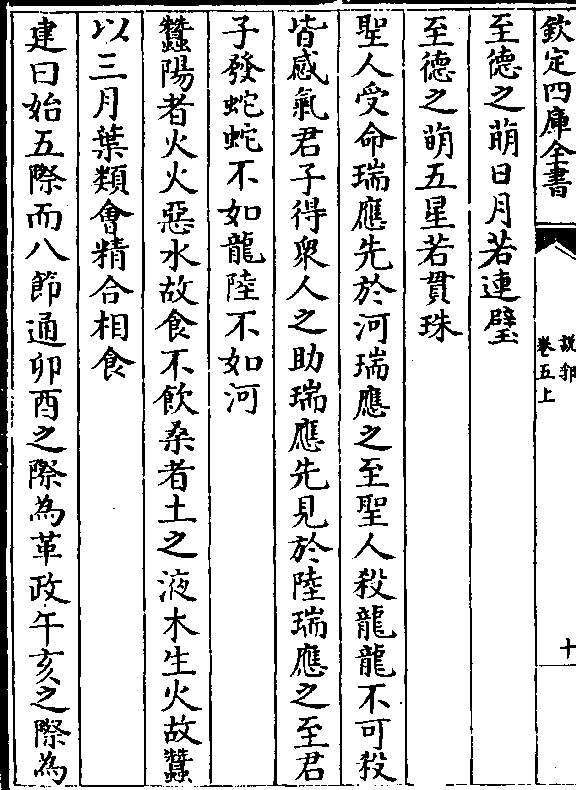 欽定四庫全書
說郛
卷五上
十
至德之萌日月若連璧
至德之萌五星若貫珠
聖人受命瑞應先於河瑞應之至聖人殺龍龍不可殺
皆感氣君子得衆人之助瑞應先見於陸瑞應之至君
子發蛇蛇不如龍陸不如河
蠶陽者火火惡水故食不飲桑者土之液木生火故蠶
以三月葉類會精合相食
建曰始五際而八節通卯酉之際為革政午亥之際為